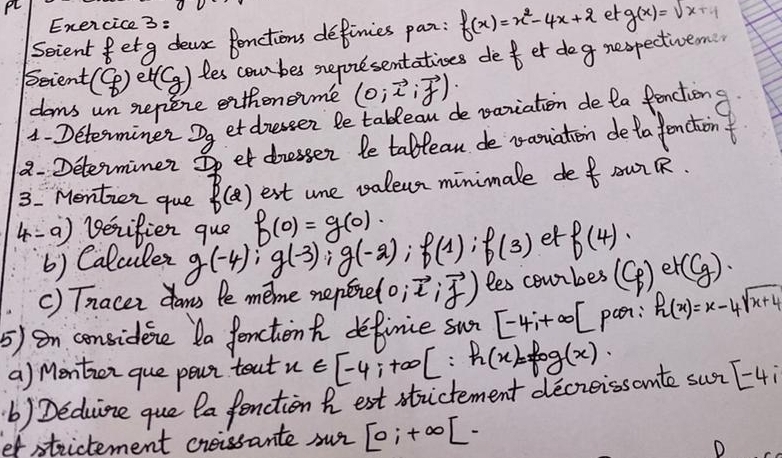 Exercice 3 :
Soient f et g deux fonctions définies par : f(x)=x²-4x+2 et g(x)=√x+4
Soient (Cf) et (Cg) les courbes représentatives de f et de g respectivement
dans un repère orthonormé (0; i⃗; j⃗).
1-Déterminer Dg et dresser le tableau de variation de la fonction g.
2-Déterminer Df et dresser le tableau de variation de la fonction f
3- Montrer que f(2) est une valeur minimale de f sur ℝ.
4-a) Vérifier que f(0) = g(0).
b) Calculer g(-4); g(-3); g(-2); f(1); f(3) et f(4).
c) Tracer dans le même repère (0; i⃗; j⃗) les courbes (Cf) et (Cg).
5) On considère la fonction h définie sur [-4;+∞[ par : h(x)=x-4√x+4
a) Montrer que pour tout x ∈ [-4;+∞[ : h(x)=fog(x).
b) Déduire que la fonction h est strictement décroissante sur [-4;
et strictement croissante sur [0;+∞[.